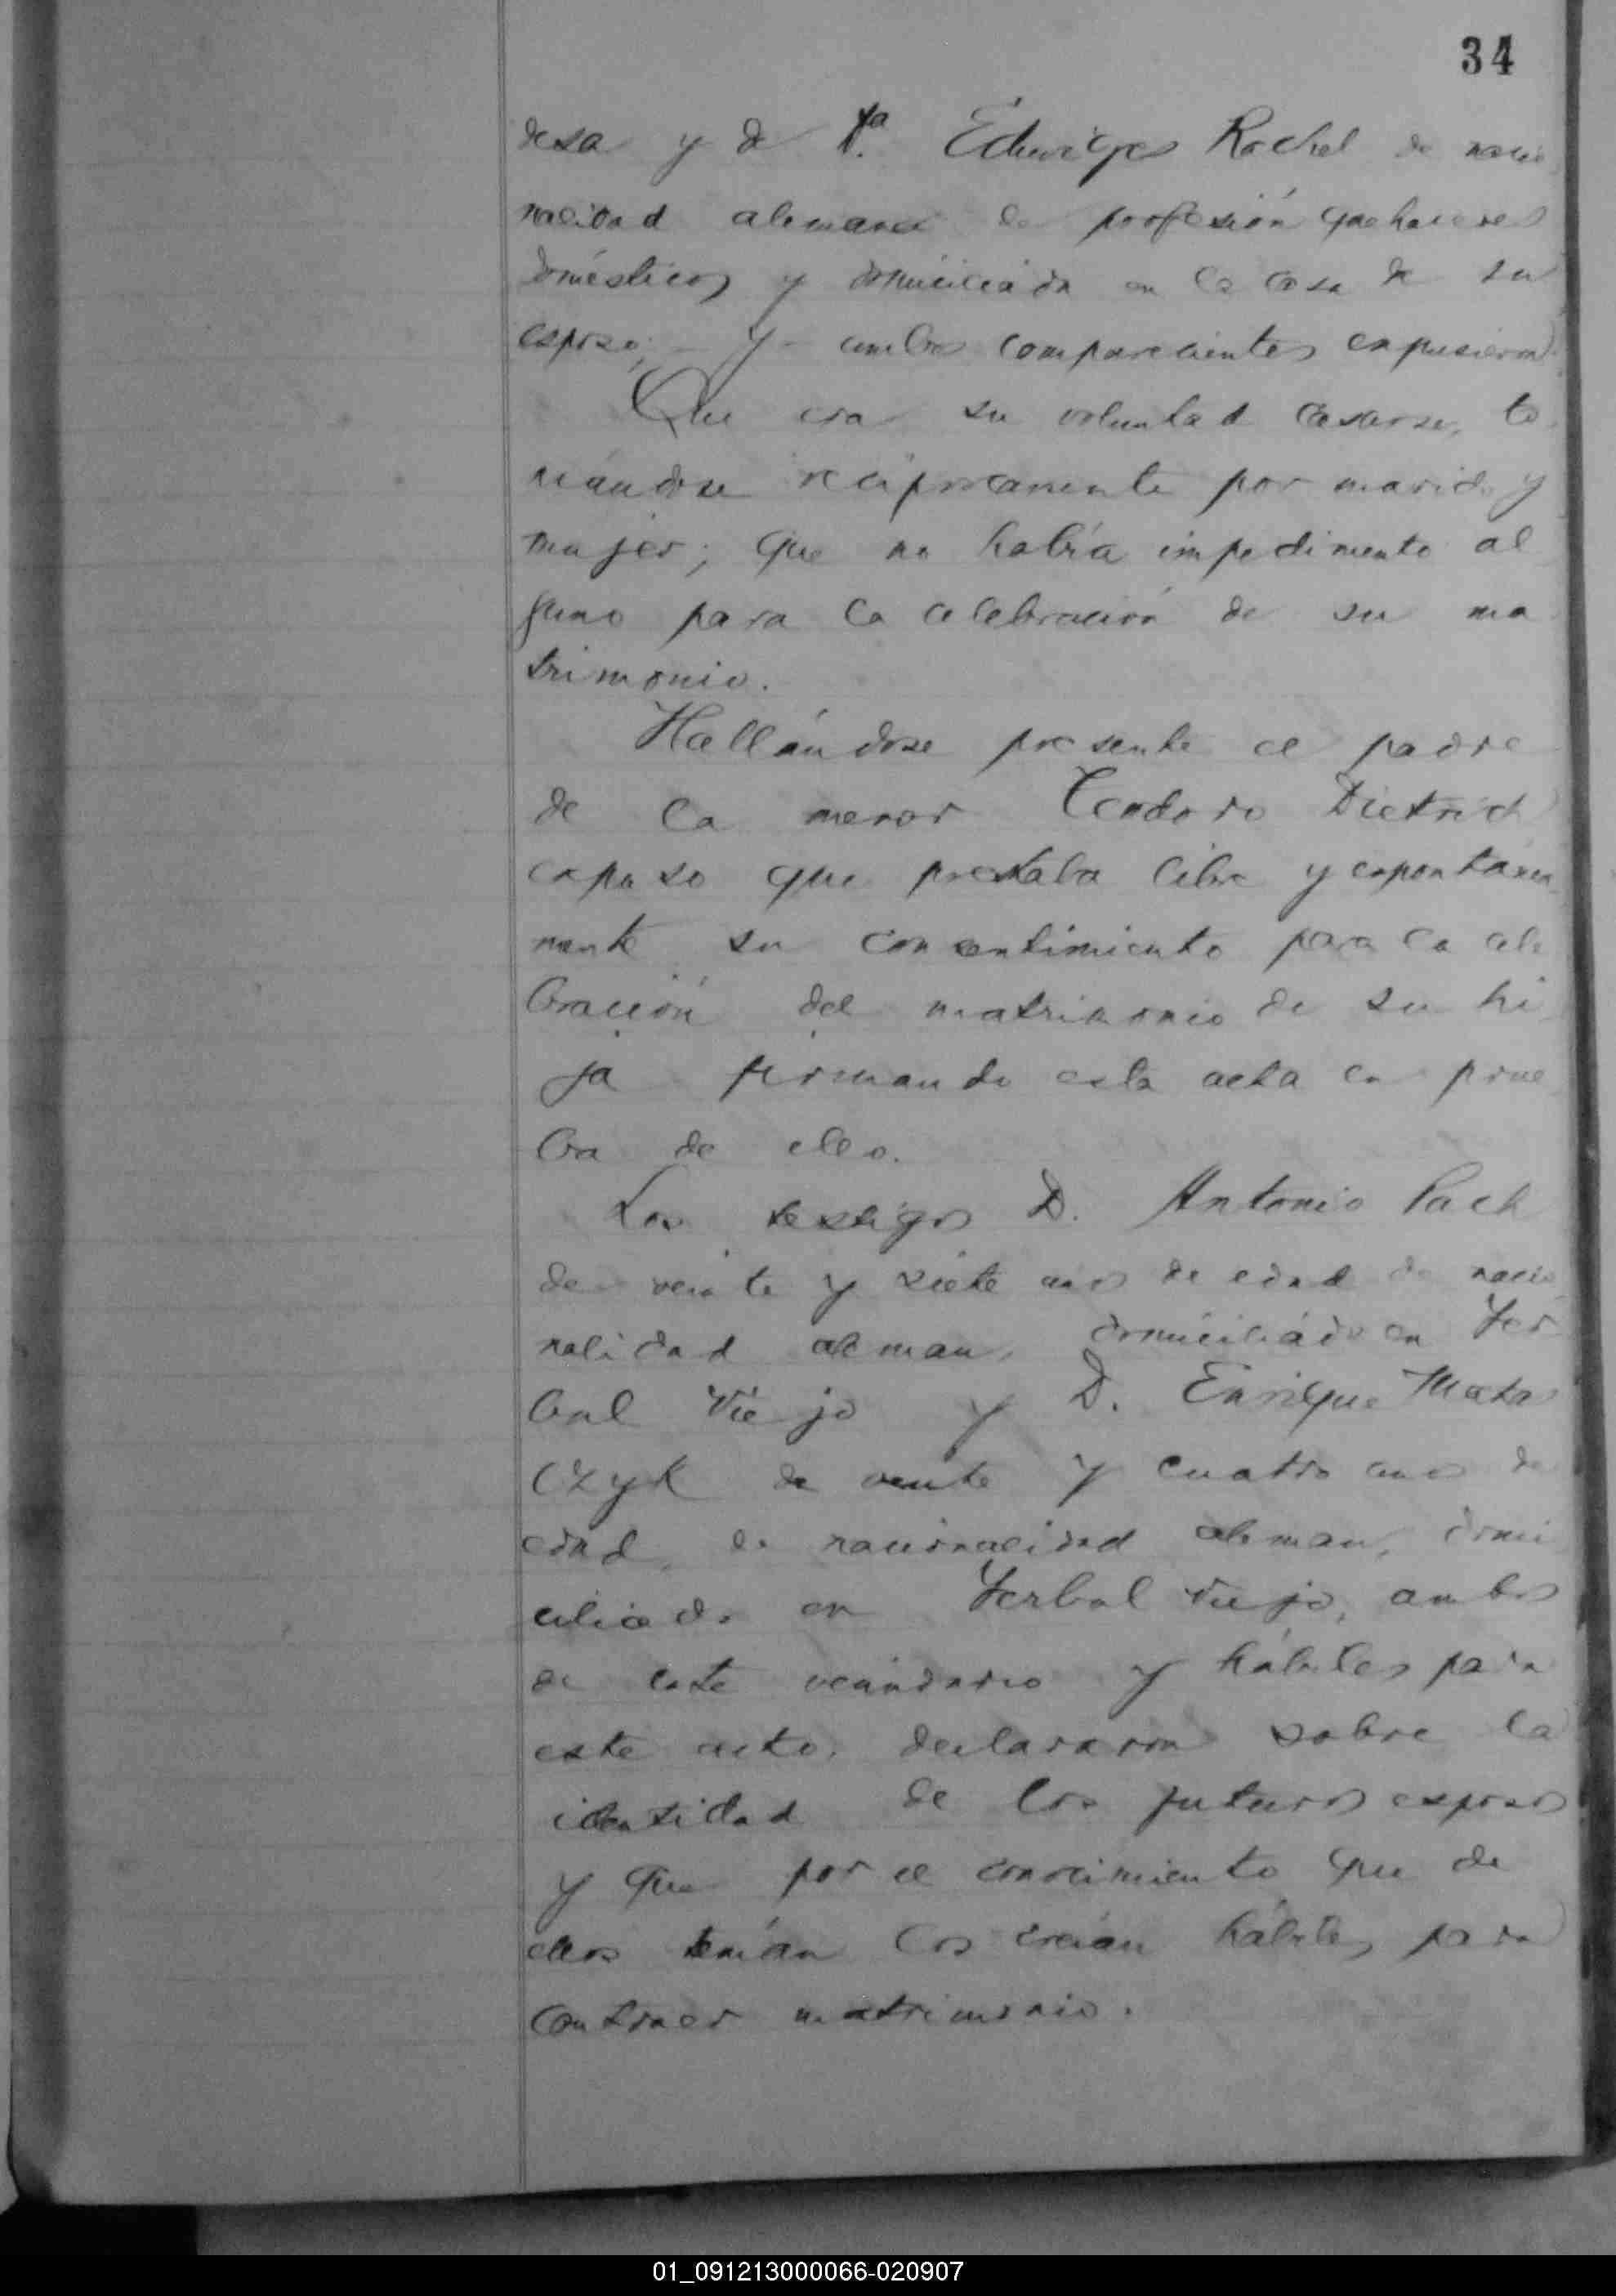 34
desa y de Dª. Eduviges Rachel de nacio
nalidad alemana de profesión quehaceres
domésticos y domiciliada en la casa de su
esposo; – y – ambos comparecientes expusieron:
Que era su voluntad casarse, to
mándose recíprocamente por marido y
mujer; que no había impedimento al
guno para la celebración de su ma
trimonio.
Hallándose presente el padre
de la menor Teodoro Dietrich
expuso que prestaba libre y espontánea
mente su consentimiento para la cele
bración del matrimonio de su hi
ja firmando esta acta en prue
ba de ello.
Los testigos D. Antonio Pach
de veinte y siete años de edad de nacio
nalidad aleman, domiciliado en Yer
bal Viejo y D. Enrique Matus
czyk de veinte y cuatro años de
edad, de nacionalidad aleman, domi
ciliado en Yerbal Viejo, ambos
de este vecindario y hábiles para
este acto, declararon sobre la
identidad de los futuros esposos
y que por el conocimiento que de
ellos tenían los creían hábiles para
contraer matrimonio.
01_091213000066-020907